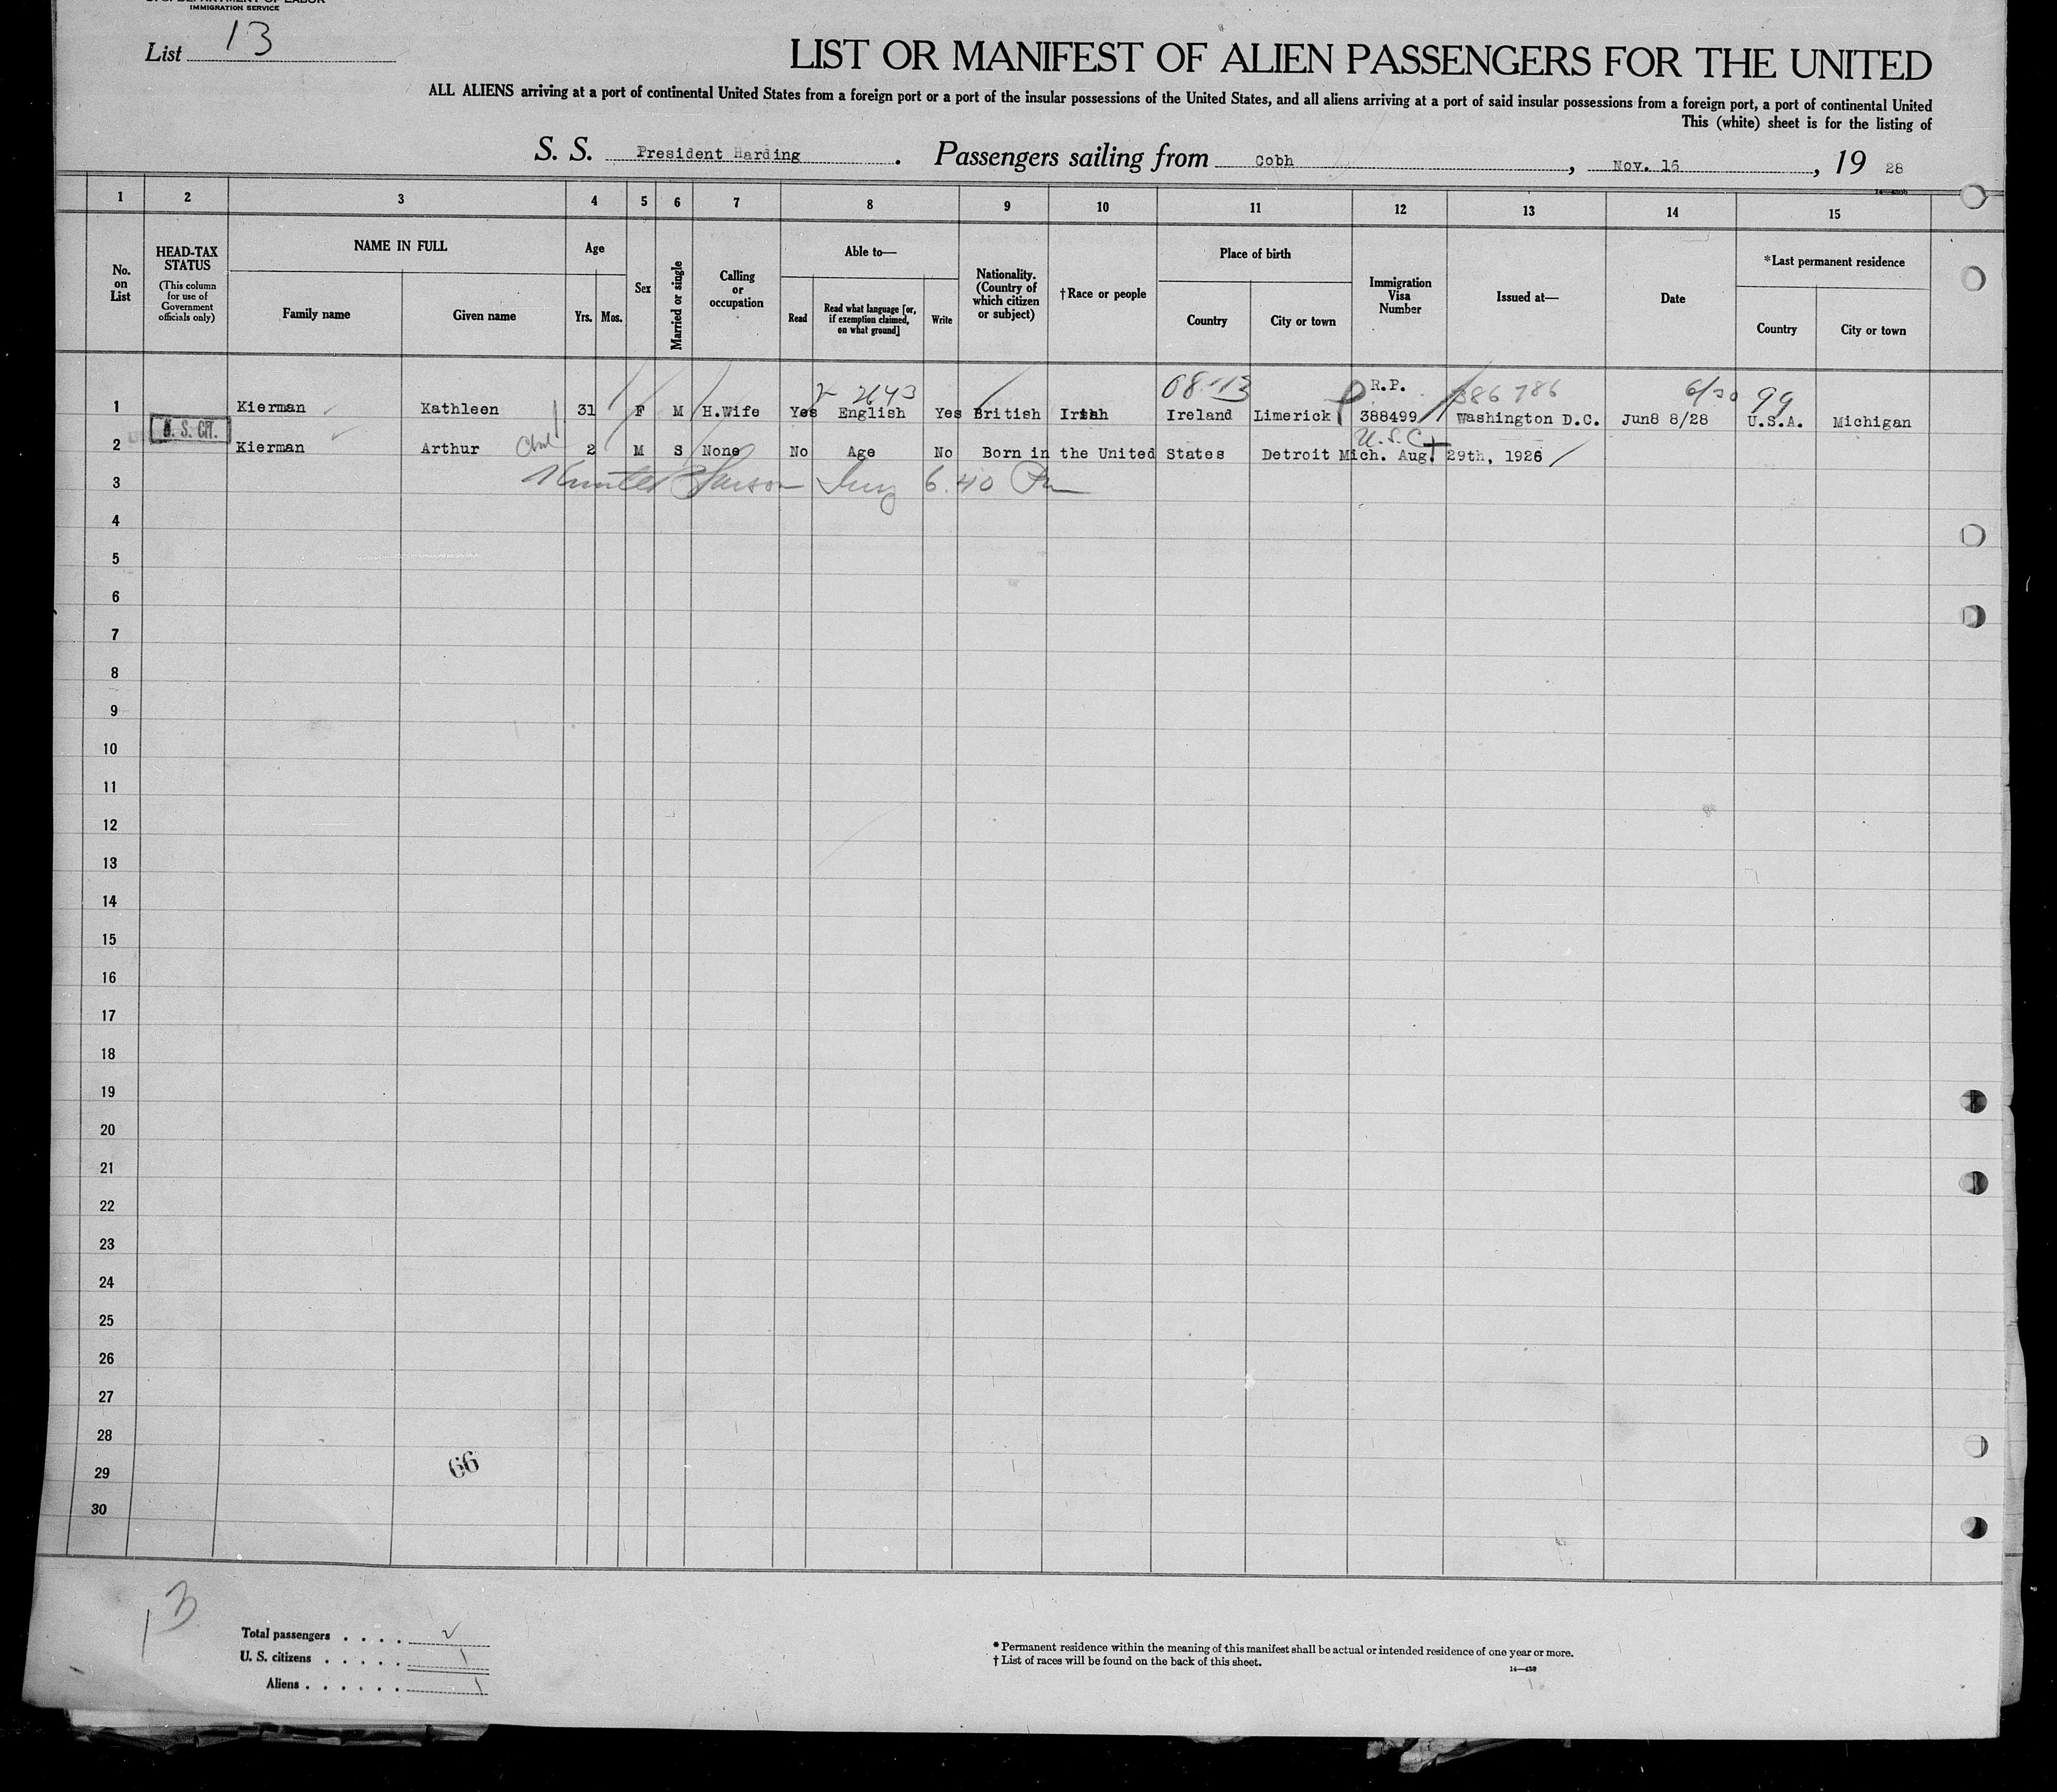 IMMIGRATION SERVICE
List 13
LIST OR MANIFEST OF ALIEN PASSENGERS FOR THE UNITED
ALL ALIENS arriving at a port of continental United States from a foreign port or a port of the insular possessions of the United States, and all aliens arriving at a port of said insular possessions from a foreign port, a port of continental United
This (white) sheet is for the listing of
S. S. President Harding . Passengers sailing from Cobh , Nov. 16 , 19 28
1 2 3 4 5 6 7 8 9 10 11 12 13 14 15
No. on List
HEAD-TAX STATUS
(This column for use of Government officials only)
NAME IN FULL
Family name Given name
Age
Yrs. Mos.
Sex
Married or single
Calling or occupation
Able to—
Read
Read what language [or, if exemption claimed, on what ground]
Write
Nationality. (Country of which citizen or subject)
†Race or people
Place of birth
Country City or town
Immigration Visa Number
Issued at—
Date
*Last permanent residence
Country City or town
2643 08 113 R.P. 386 786 6/30 99
1 Kierman Kathleen 31 F M H.Wife Yes English Yes British Irish Ireland Limerick 388499 Washington D.C. Jun8 8/28 U.S.A. Michigan
U. S. CIT. U.S.C.
2 Kierman Arthur 2 M S None No Age No Born in the United States Detroit Mich. Aug. 29th, 1926
3 6.40 Pm
4
5
6
7
8
9
10
11
12
13
14
15
16
17
18
19
20
21
22
23
24
25
26
27
28
29 66
30
13
Total passengers . . . . 2
U. S. citizens . . . . . 1
Aliens . . . . . . 1
* Permanent residence within the meaning of this manifest shall be actual or intended residence of one year or more.
† List of races will be found on the back of this sheet.